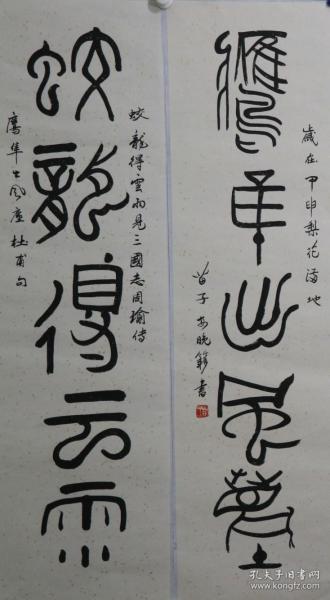 歲在甲申梨花满地
鷹隼出風塵
苗子安晚簃書
蛟龍得雲雨見三國志周瑜傳
蛟龍得云雨
鷹隼出風塵杜甫句
孔夫子旧书网